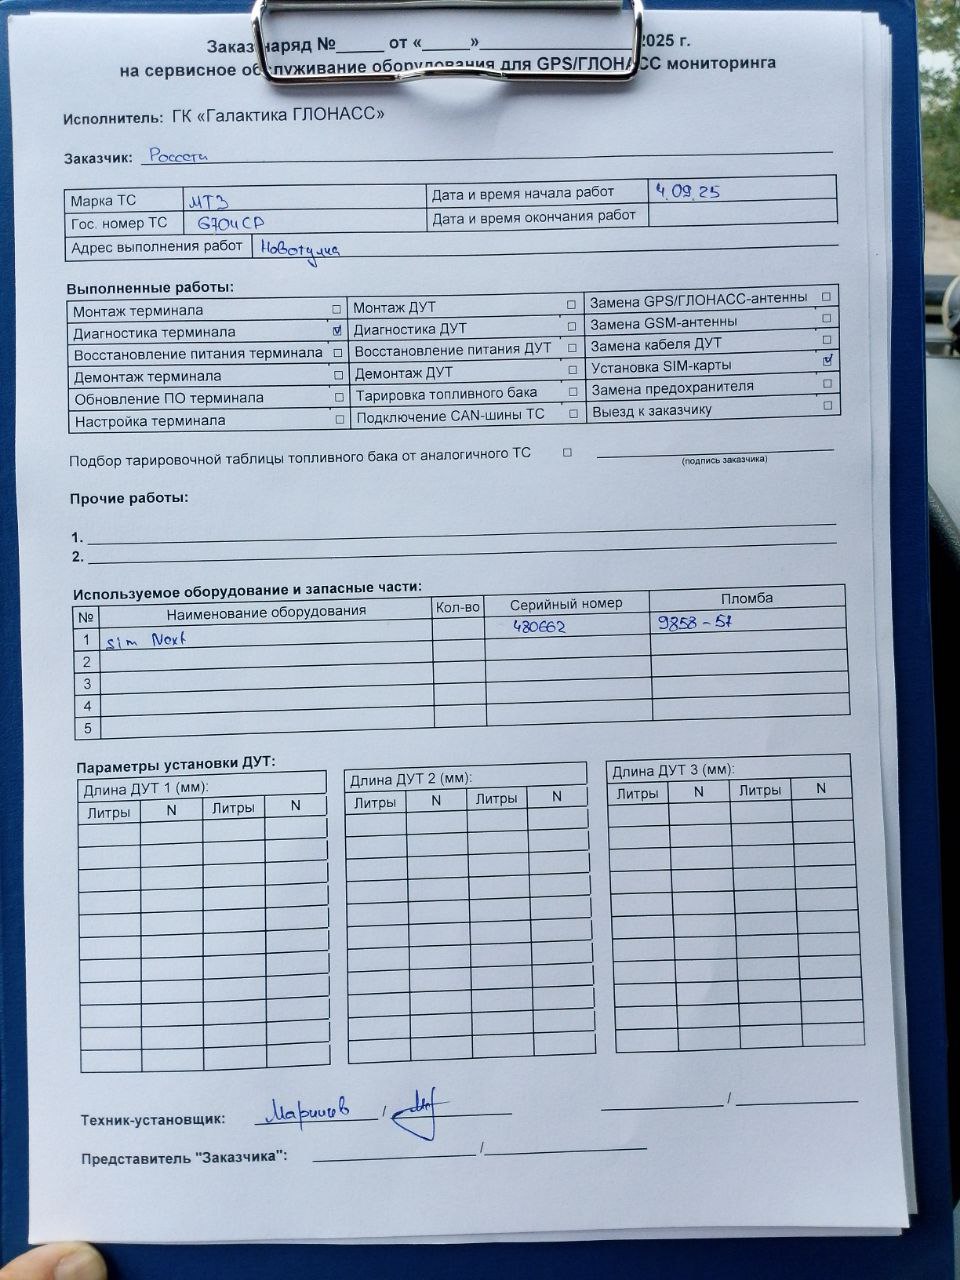 Заказ-наряд №_____ от «_____»_________________2025 г.
на сервисное обслуживание оборудования для GPS/ГЛОНАСС мониторинга
Исполнитель: ГК «Галактика ГЛОНАСС»
Заказчик: Россети
Марка ТС МТЗ Дата и время начала работ 4.09.25
Гос. номер ТС 6704СР Дата и время окончания работ
Адрес выполнения работ Новотулка
Выполненные работы:
Монтаж терминала ☐ Монтаж ДУТ ☐ Замена GPS/ГЛОНАСС-антенны ☐
Диагностика терминала ☑ Диагностика ДУТ ☐ Замена GSM-антенны ☐
Восстановление питания терминала ☐ Восстановление питания ДУТ ☐ Замена кабеля ДУТ ☐
Демонтаж терминала ☐ Демонтаж ДУТ ☐ Установка SIM-карты ☑
Обновление ПО терминала ☐ Тарировка топливного бака ☐ Замена предохранителя ☐
Настройка терминала ☐ Подключение CAN-шины ТС ☐ Выезд к заказчику ☐
Подбор тарировочной таблицы топливного бака от аналогичного ТС ☐
(подпись заказчика)
Прочие работы:
1.
2.
Используемое оборудование и запасные части:
№ Наименование оборудования Кол-во Серийный номер Пломба
1 sim Next 480662 9858-57
2
3
4
5
Параметры установки ДУТ:
Длина ДУТ 1 (мм): Длина ДУТ 2 (мм): Длина ДУТ 3 (мм):
Литры N Литры N Литры N Литры N Литры N Литры N
Техник-установщик: /
Представитель "Заказчика": /